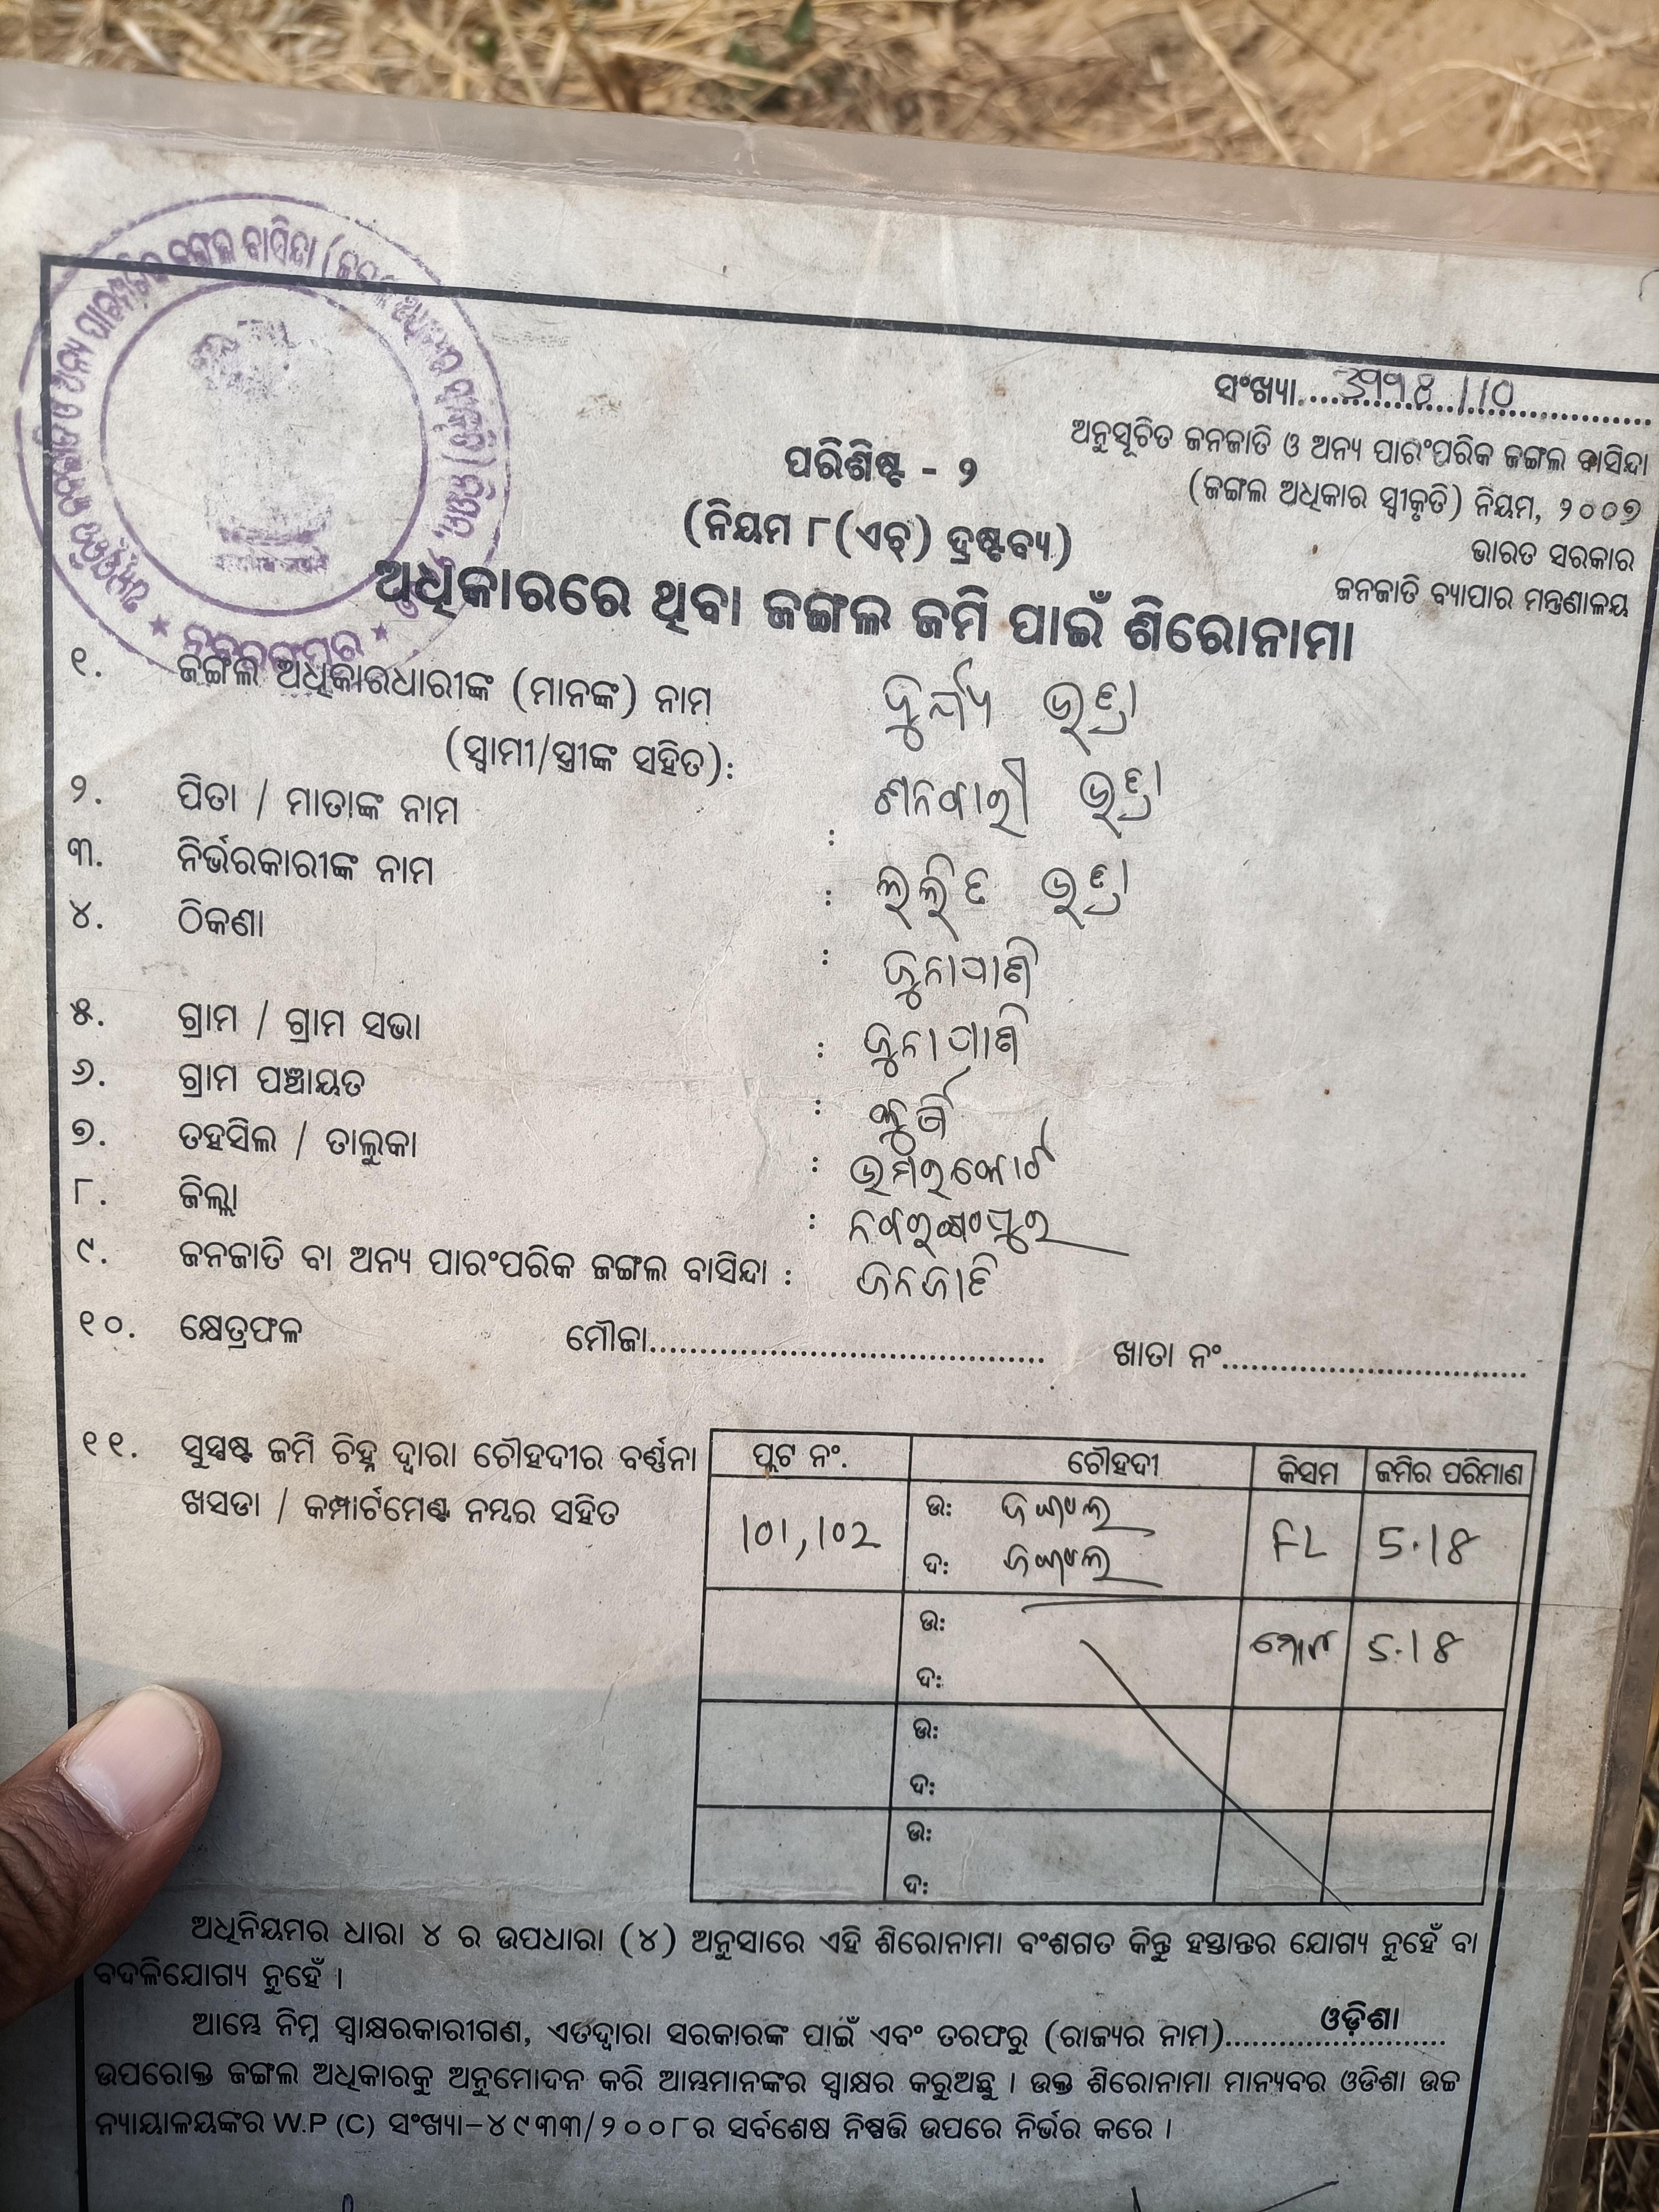 ସଂଖ୍ୟା
ଅନୁସୂଚିତ ଜନଜାତି ଓ ଅନ୍ୟ ପାରଂପରିକ ଜଙ୍ଗଲ ବାସିନ୍ଦା
(ଜଙ୍ଗଲ ଅଧିକାର ସ୍ୱୀକୃତି) ନିୟମ, ୨୦୦୭
ଭାରତ ସରକାର
ଜନଜାତି ବ୍ୟାପାର ମନ୍ତ୍ରଣାଳୟ
ପରିଶିଷ୍ଟ - ୨
(ନିୟମ ୮(ଏଚ୍) ଦ୍ରଷ୍ଟବ୍ୟ)
ଅଧିକାରରେ ଥିବା ଜଙ୍ଗଲ ଜମି ପାଇଁ ଶିରୋନାମା
୧. ଜଙ୍ଗଲ ଅଧିକାରଧାରୀଙ୍କ (ମାନଙ୍କ) ନାମ
(ସ୍ୱାମୀ/ସ୍ତ୍ରୀଙ୍କ ସହିତ):
୨. ପିତା / ମାତାଙ୍କ ନାମ :
୩. ନିର୍ଭରକାରୀଙ୍କ ନାମ : ଲଲିତ
୪. ଠିକଣା : ଜୁନାପାଣି
୫. ଗ୍ରାମ / ଗ୍ରାମ ସଭା : ଜୁନାପାଣି
୬. ଗ୍ରାମ ପଞ୍ଚାୟତ :
୭. ତହସିଲ / ତାଲୁକା : ଉମରକୋଟ
୮. ଜିଲ୍ଲା : ନବରଙ୍ଗପୁର
୯. ଜନଜାତି ବା ଅନ୍ୟ ପାରଂପରିକ ଜଙ୍ଗଲ ବାସିନ୍ଦା : ଜନଜାତି
୧୦. କ୍ଷେତ୍ରଫଳ ମୌଜା........ ଖାତା ନଂ........
୧୧. ସୁସ୍ପଷ୍ଟ ଜମି ଚିହ୍ନ ଦ୍ୱାରା ଚୌହଦୀର ବର୍ଣ୍ଣନା
ଖସଡା / କମ୍ପାର୍ଟମେଣ୍ଟ ନମ୍ବର ସହିତ
ପ୍ଲଟ ନଂ. ଚୌହଦୀ କିସମ ଜମିର ପରିମାଣ
101, 102 ଉ: ଜଙ୍ଗଲ FL 5.14
ଦ: ଜଙ୍ଗଲ
ଉ: ମୋଟ 5.14
ଦ:
ଉ:
ଦ:
ଉ:
ଦ:
ଅଧିନିୟମର ଧାରା ୪ ର ଉପଧାରା (୪) ଅନୁସାରେ ଏହି ଶିରୋନାମା ବଂଶଗତ କିନ୍ତୁ ହସ୍ତାନ୍ତର ଯୋଗ୍ୟ ନୁହେଁ ବା
ବଦଳିଯୋଗ୍ୟ ନୁହେଁ ।
ଆମ୍ଭେ ନିମ୍ନ ସ୍ୱାକ୍ଷରକାରୀଗଣ, ଏତଦ୍ଦ୍ୱାରା ସରକାରଙ୍କ ପାଇଁ ଏବଂ ତରଫରୁ (ରାଜ୍ୟର ନାମ)........ଓଡ଼ିଶା........
ଉପରୋକ୍ତ ଜଙ୍ଗଲ ଅଧିକାରକୁ ଅନୁମୋଦନ କରି ଆମ୍ଭମାନଙ୍କର ସ୍ୱାକ୍ଷର କରୁଅଛୁ । ଉକ୍ତ ଶିରୋନାମା ମାନ୍ୟବର ଓଡିଶା ଉଚ୍ଚ
ନ୍ୟାୟାଳୟଙ୍କର W.P (C) ସଂଖ୍ୟା-୪୯୩୩/୨୦୦୮ର ସର୍ବଶେଷ ନିଷ୍ପତ୍ତି ଉପରେ ନିର୍ଭର କରେ ।